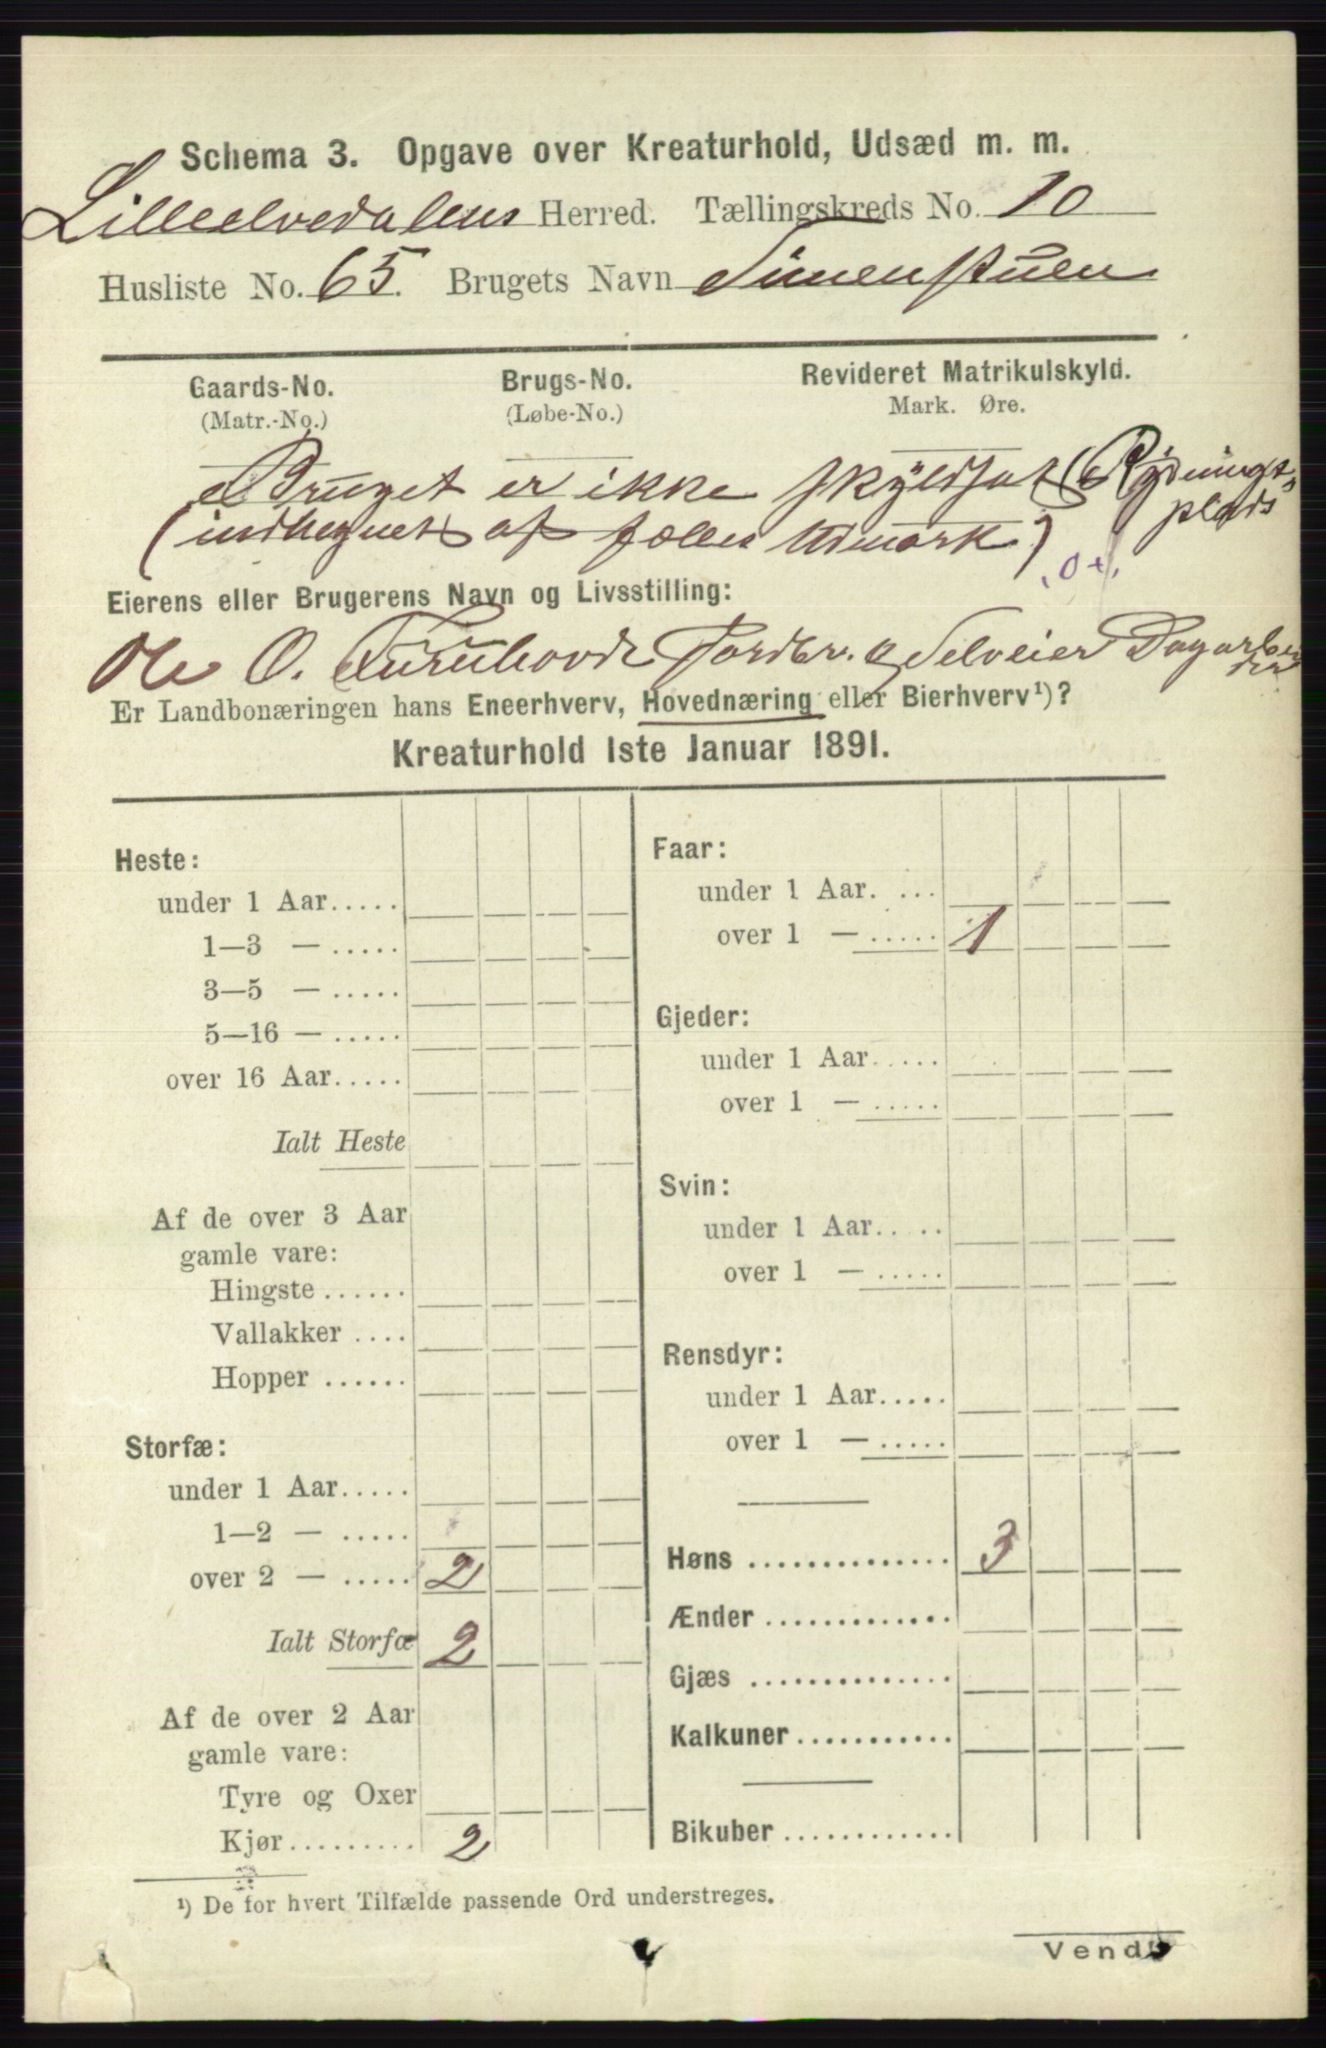 Schema 3. Opgave over Kreaturhold, Udsæd m. m.
Lilleelvedalens Herred. Tællingskreds No. 10
Husliste No. 65. Brugets Navn Simenstuen
Gaards-No. Brugs-No. Revideret Matrikulskyld.
(Matr.-No.) (Løbe-No.) Mark. Øre.
Bruget er ikke skyldsat (Rydnings
plads
(indhegnet af fælles Udmark)
0+.
Eierens eller Brugerens Navn og Livsstilling:
Ole O. Furuhovde Jordbr. og Selveier Dagarbei
der
Er Landbonæringen hans Eneerhverv, Hovednæring eller Bierhverv¹)?
Kreaturhold 1ste Januar 1891.
Heste:
under 1 Aar.....
1—3 — .....
3—5 — .....
5—16 — .....
over 16 Aar.....
Ialt Heste
Af de over 3 Aar
gamle vare:
Hingste ......
Vallakker ....
Hopper ......
Storfæ:
under 1 Aar.....
1—2 — .....
over 2 — ..... 2
Ialt Storfæ 2
Af de over 2 Aar
gamle vare:
Tyre og Oxer
Kjør......... 2
Faar:
under 1 Aar. ...
over 1 — ..... 1
Gjeder:
under 1 Aar.....
over 1 — .....
Svin:
under 1 Aar.....
over 1 — .....
Rensdyr:
under 1 Aar.....
over 1 — .....
Høns .............. 3
Ænder .............
Gjæs ..............
Kalkuner ...........
Bikuber ............
¹) De for hvert Tilfælde passende Ord understreges.
Vend!